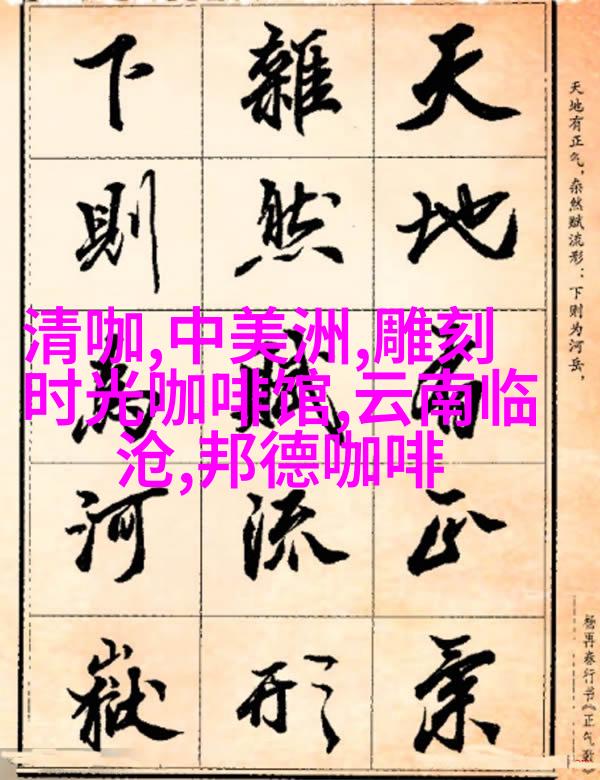 清咖,中美洲,雕刻
时光咖啡馆,云南临
沧,邦德咖啡
天地有正氣
雜然賦流形
下則為河嶽
天地有正气，杂然赋流形：下则为河岳，
杨再春行书《正气歌》